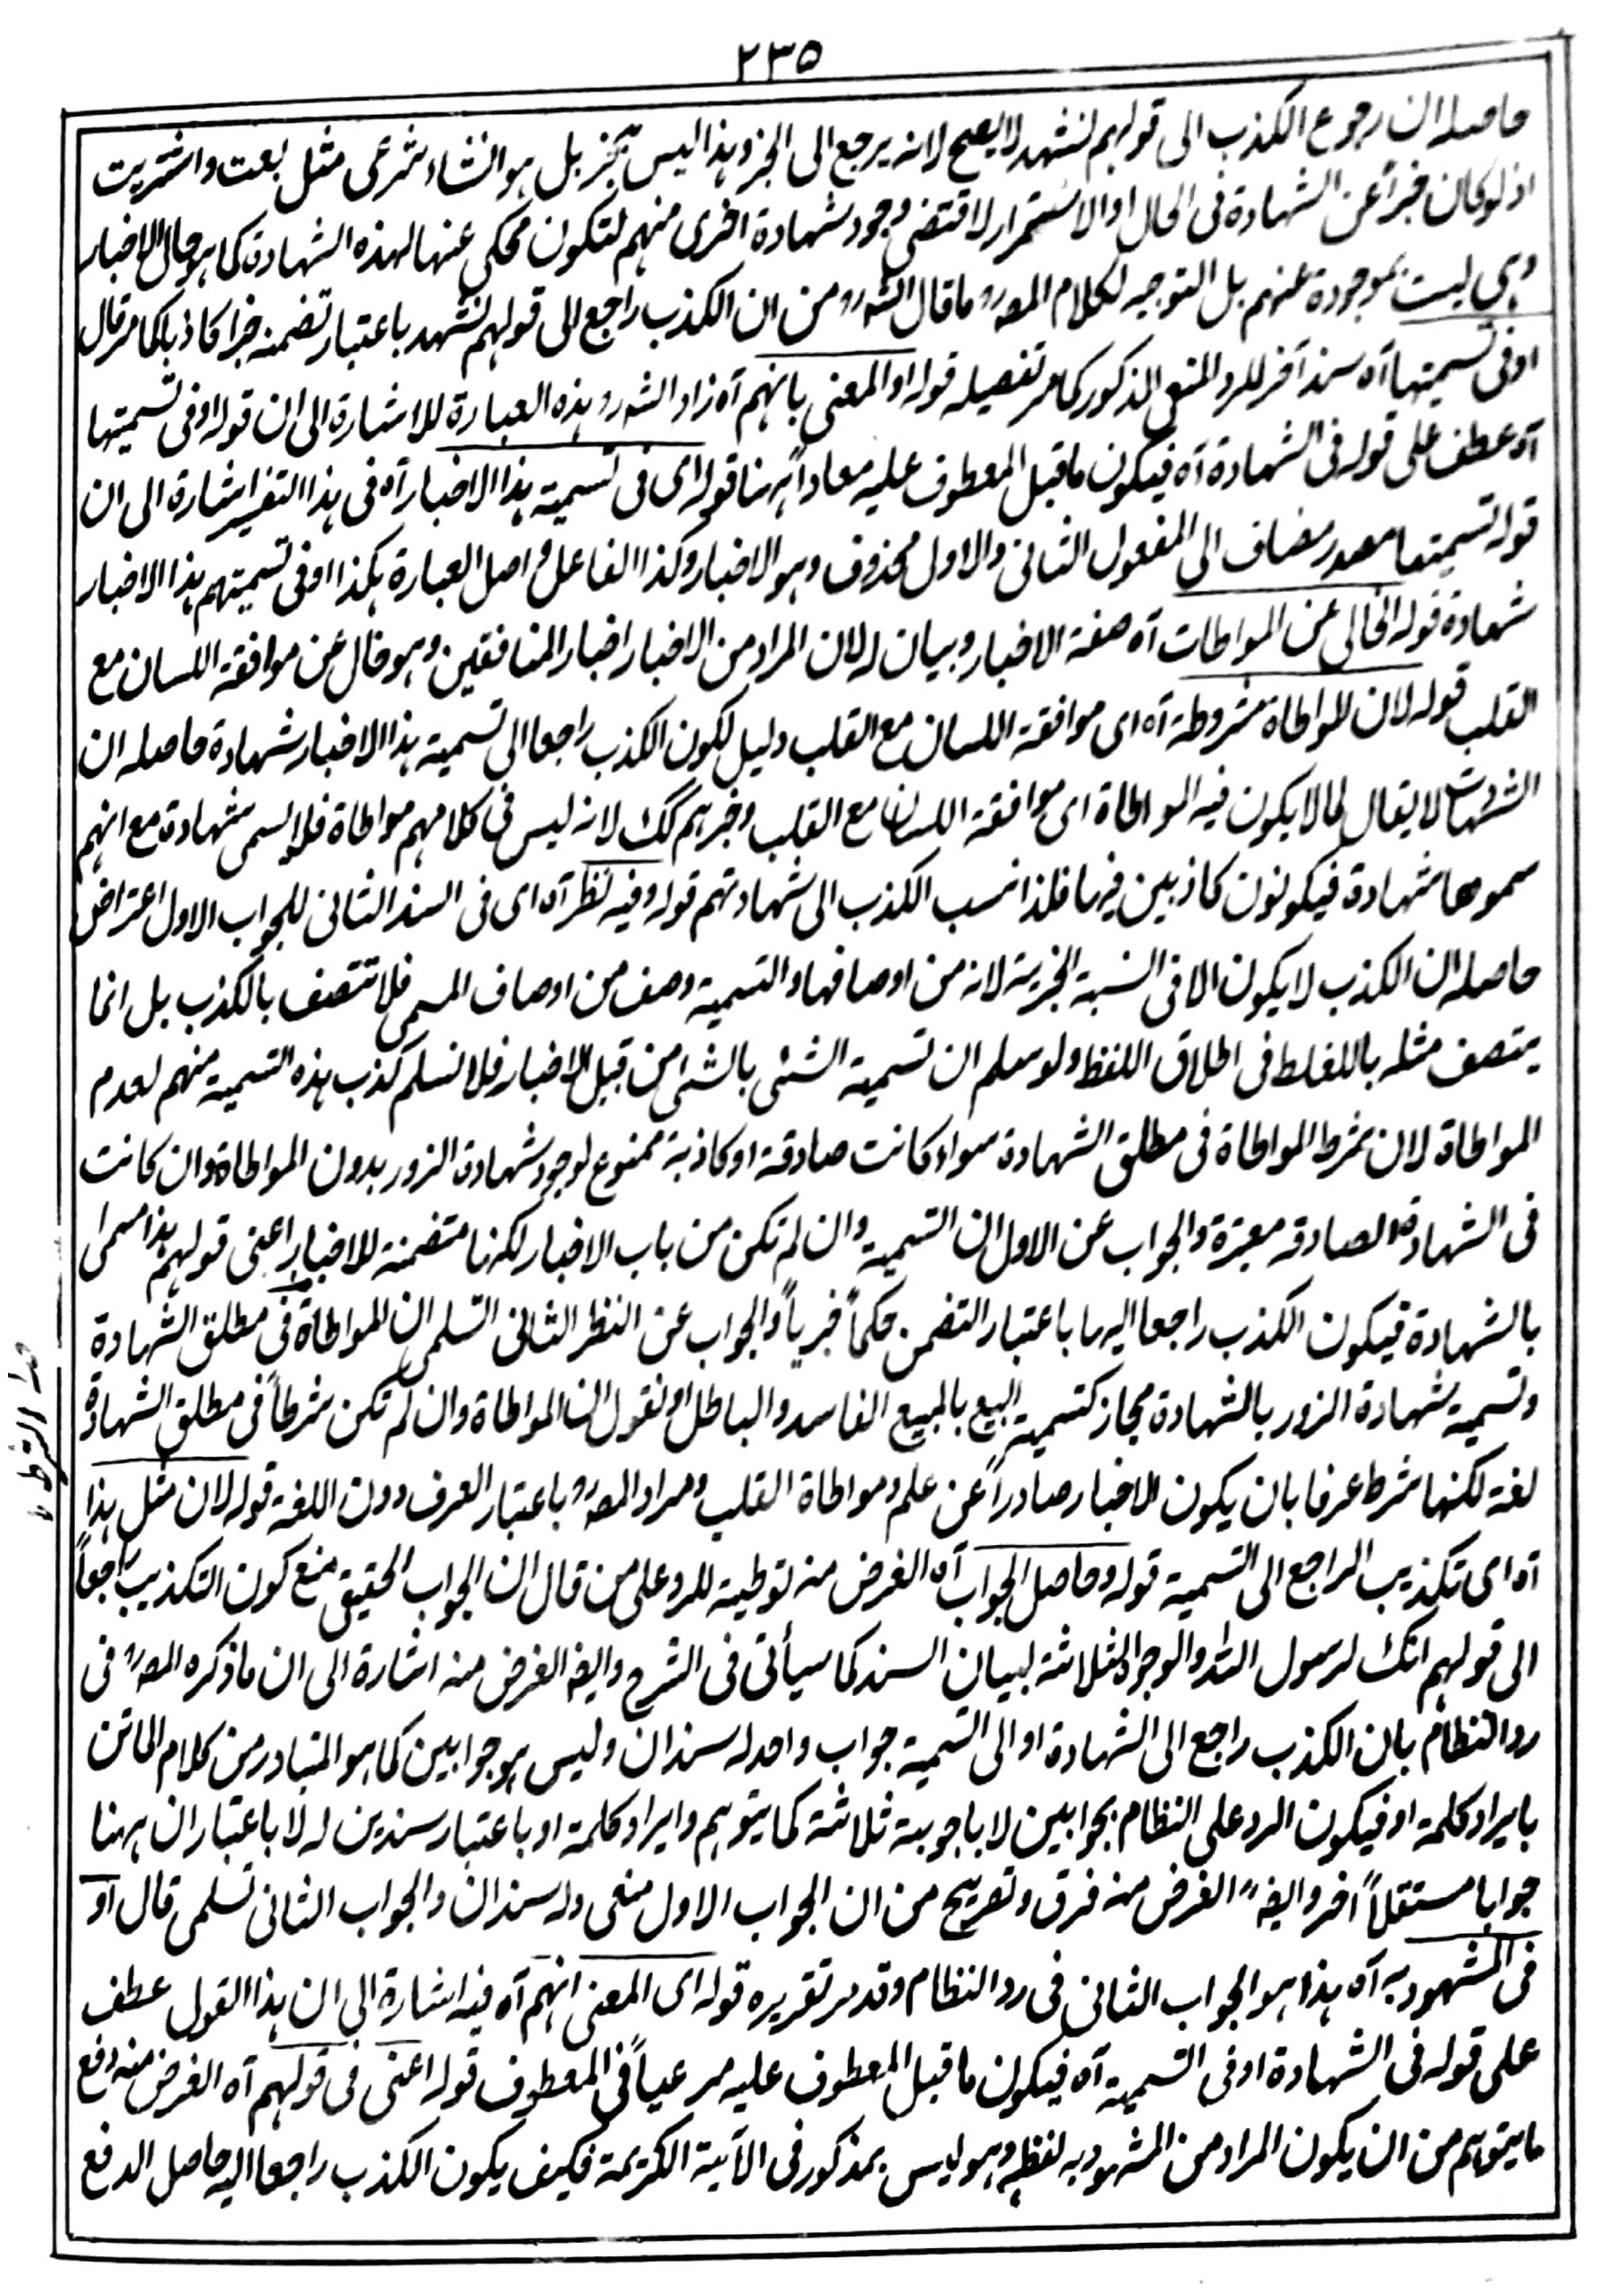 ٢٣٥
حاصله ان رجوع الكذب الى قولهم نشهد لا يصح لانه يرجع الى الخبر وهذا ليس بخبر بل هو انشاء شرعى مثل بعت واشتريت
اذ لو كان خبراً عن الشهادة فى الحال او الاستمرار لاقتضى وجود شهادة اخرى منهم لتكون محكى عنها لهذه الشهادة كما هو حال الاخبار
وهى ليست بموجودة عنهم بل التوجيه لكلام المصر ما قال الشهر من ان الكذب راجع الى قولهم نشهد باعتبار تضمنه خبرا كاذبا كما مر قال
او فى تسميتها آه سند آخر للرد المنعى المذكور كما مر تفصيله قوله او المعنى بانهم آه زاد الشهر هذه العبارة للاشارة الى ان قوله او فى تسميتها
آه عطف على قوله فى الشهادة آه فيكون ما قبل المعطوف عليه معاداً ههنا قوله اى فى تسمية هذا الاخبار آه فى هذا التفسير اشارة الى ان
قوله تسميتها مصدر مضاف الى المفعول الثانى والاول محذوف وهو الاخبار وكذا الفاعل واصل العبارة هكذا او فى تسميتهم هذا الاخبار
شهادة قوله الخالى عن المواطات آه صفة الاخبار وبيان له لان المراد من الاخبار اخبار المنافقين وهو خال عن موافقة اللسان مع
القلب قوله لان المواطاة مشروطة آه اى موافقة اللسان مع القلب دليل لكون الكذب راجعا الى تسمية هذا الاخبار شهادة حاصله ان
الشهادت لا يقال لما لا يكون فيه المواطاة اى موافقة اللسان مع القلب وخبرهم كك لانه ليس فى كلامهم مواطاة فلا يسمى شهادة مع انهم
سموها شهادة فيكونون كاذبين فيها فلذا نسب الكذب الى شهادتهم قوله وفيه نظر آه اى فى السند الثانى للجواب الاول اعتراض
حاصله ان الكذب لا يكون الا فى النسبة الخبرية لانه من اوصافها والتسمية وصف من اوصاف المسمى فلا تتصف بالكذب بل انما
يتصف مثله بالغلط فى اطلاق اللفظ ولو سلم ان تسمية الشئ بالشئ من قبيل الاخبار فلا نسلم كذب هذه التسمية منهم لعدم
المواطاة لان شرط المواطاة فى مطلق الشهادة سواء كانت صادقة او كاذبة ممنوع لوجود شهادة الزور بدون المواطاة وان كانت
فى الشهادة الصادقه معتبرة والجواب عن الاول ان التسمية وان لم تكن من باب الاخبار لكنها متضمنة للاخبار اعنى قولهم هذا مسمى
بالشهادة فيكون الكذب راجعا اليها باعتبار التضمن حكماً خبرياً والجواب عن النظر الثانى التسلمى ان المواطاة فى مطلق الشهادة
وتسمية شهادة الزور بالشهادة مجاز كتسمية البيع بالمبيع الفاسد والباطل او نقول ان المواطاة وان لم تكن شرطاً فى مطلق الشهادة
لغة لكنها شرط عرفا بان يكون الاخبار صادراً عن علم ومواطاة القلب ومراد المصر باعتبار العرف دون اللغة قوله لان مثل هذا
آه اى تكذيب الراجع الى التسمية قوله وحاصل الجواب آه الغرض منه توطية للرد على من قال ان الجواب الحقيقى منع كون التكذيب راجعاً
الى قولهم انك لرسول الله والوجوه الثلاثة لبيان السند كما سيأتى فى الشرح وايضا الغرض منه اشارة الى ان ما ذكره المصر فى
رد النظام بان الكذب راجع الى الشهادة او الى التسمية جواب واحد له سندان وليس هو جوابين كما هو المتبادر من كلام الماتن
بايراد كلمة او فيكون الرد على النظام بجوابين لا باجوبة ثلاثة كما يتوهم وايراد كلمة او باعتبار سندين له لا باعتبار ان ههنا
جوابا مستقلاً اخر وايضا الغرض منه فرق وتصريح من ان الجواب الاول منعى وله سندان والجواب الثانى تسلمى قال او
فى المشهود به آه هذا هو الجواب الثانى فى رد النظام وقد مر تقريره قوله اى المعنى انهم آه فيه اشارة الى ان هذا القول عطف
على قوله فى الشهادة او فى التسمية آه فيكون ما قبل المعطوف عليه مرعياً فى المعطوف قوله اعنى فى قولهم آه الغرض منه دفع
ما يتوهم من ان يكون المراد من المشهود به لفظه وهو ليس بمذكور فى الآية الكريمة فكيف يكون الكذب راجعا اليه حاصل الدفع